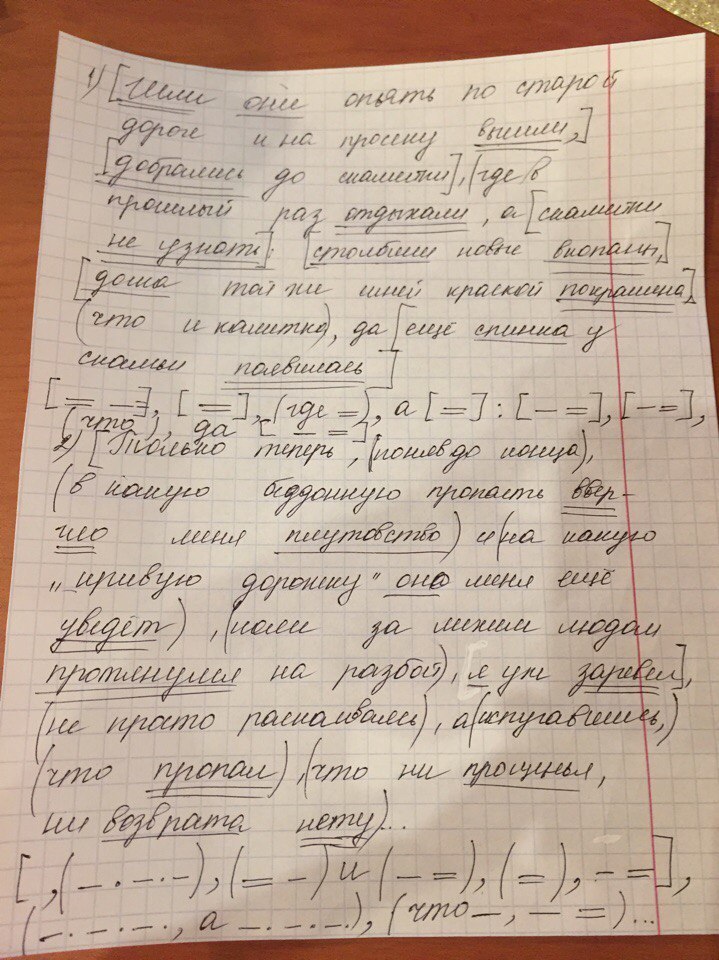 1) [Шли они опять по старой
дороге и на просеку вышли,]
[добрались до скамейки], (где в
прошлый раз отдыхали, а [скамейки
не узнать]: [столбики новые вкопаны,]
[доска той же синей краской покрашена],
(что и калитка), да [ещё спинка у
скамьи появилась]
[= –], [=], (где =), а [=] : [– =], [– =],
(что ), да [– =]
2) [Только теперь, (поняв до конца),
(в какую бездонную пропасть ввер-
гло меня плутовство) и (на какую
„кривую дорожку" оно меня ещё
уведёт), (коли за лихим людом
протянулся на разбой), [я уж заревел],
(не просто раскаиваясь), а (испугавшись,)
(что пропал), (что ни прощенья,
ни возврата нету)...
[ , (– · – · –), (= –) и (– =), (=), – =],
(– · – · – · , а – · – · –), (что –, – =)...